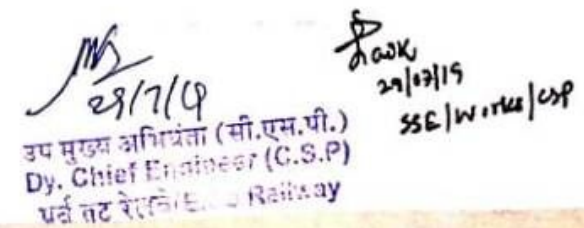 29/7/19
उप मुख्य अभियंता (सी.एस.पी.)
Dy. Chief Engineer (C.S.P)
पूर्व तट रेलवे/E.Co Railway
29/07/19
SSE/Works/CSP